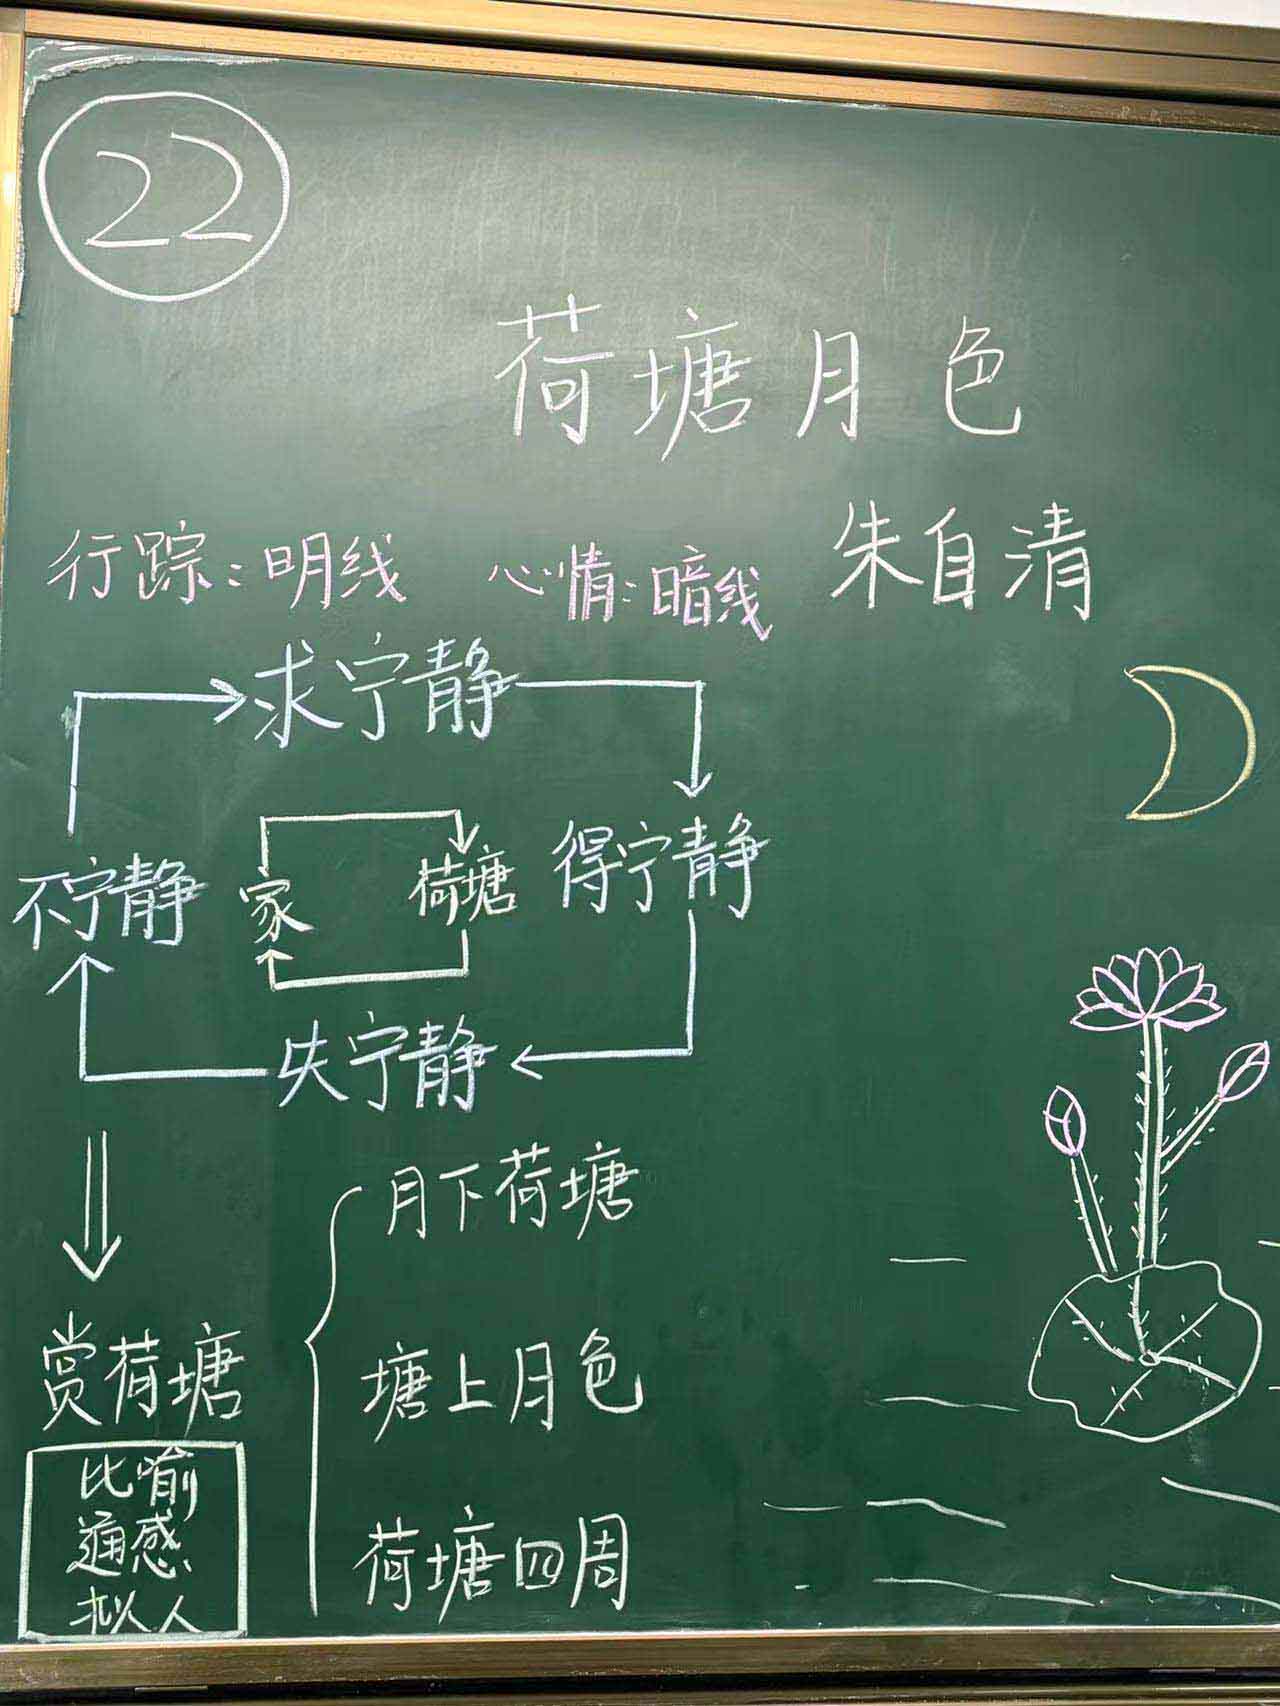 22
荷塘月色
朱自清
行踪:明线 心情:暗线
求宁静
不宁静 家 荷塘 得宁静
失宁静
月下荷塘
赏荷塘 塘上月色
比喻
通感
拟人
荷塘四周